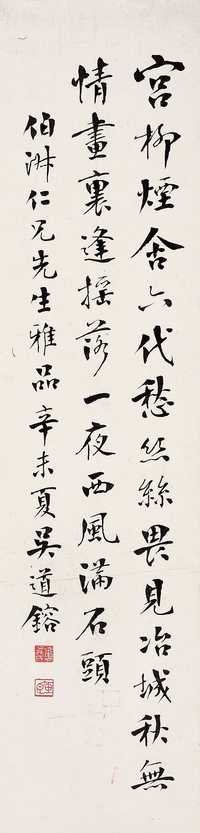 宮柳煙含六代愁絲絲畏見冶城秋無
情畫裏逢摇落一夜西風滿石頭
伯淋仁兄先生雅品辛未夏吳道鎔